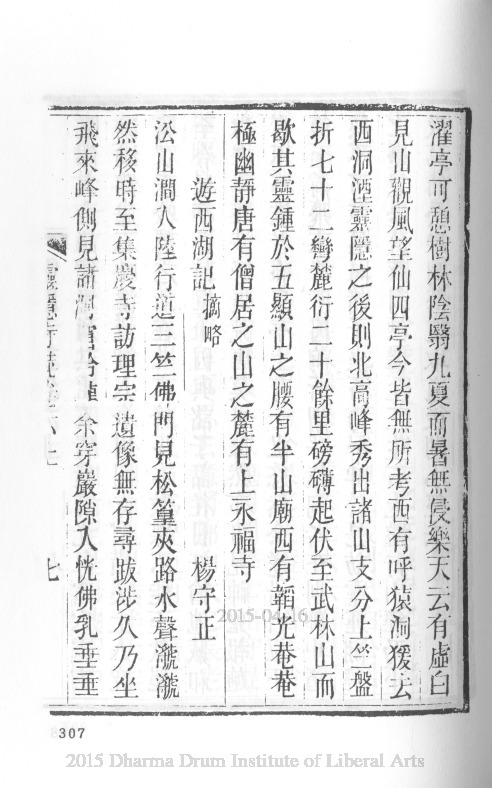 濯亭可憩樹林陰翳九夏而暑無侵樂天云有虛白
見山觀風望仙四亭今皆無所考西有呼猿洞猨去
西洞湮靈隱之後則北高峰秀出諸山支分上竺盤
折七十二彎麓衍二十餘里磅礡起伏至武林山而
歇其靈鍾於五顯山之腰有半山廟西有韜光菴菴
極幽靜唐有僧居之山之麓有上永福寺
遊西湖記摘略 楊守正
㳂山澗入陸行道三竺佛門見松篁夾路水聲㶁㶁
然移時至集慶寺訪理宗遺像無存尋跋涉久乃坐
飛來峰側見諸洞 余穿巖隙入恍佛乳垂垂
七
2015-04-16
307
2015 Dharma Drum Institute of Liberal Arts